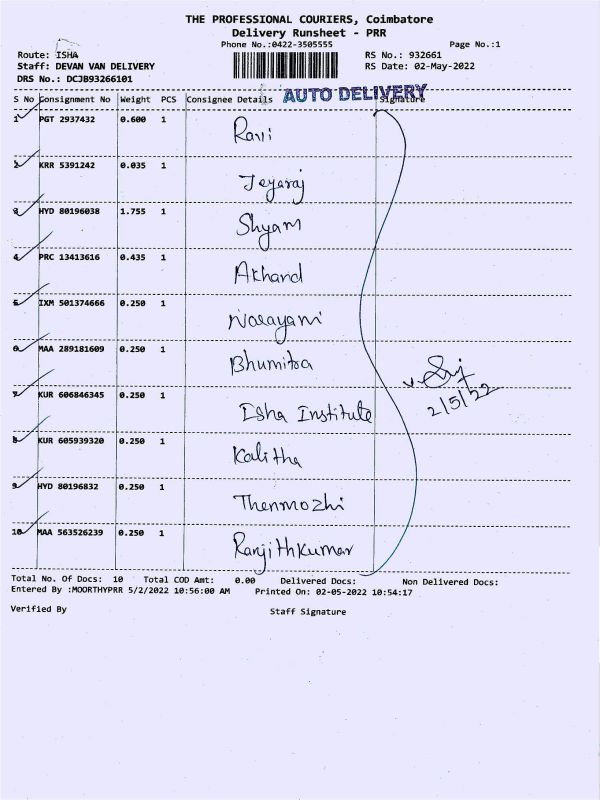 THE PROFESSIONAL COURIERS, Coimbatore
Delivery Runsheet - PRR
Phone No.:0422-3505555 Page No.:1
Route: ISHA RS No.: 932661
Staff: DEVAN VAN DELIVERY RS Date: 02-May-2022
DRS No.: DCJB93266101
AUTO DELIVERY
S No Consignment No Weight PCS Consignee Details Signature
1 PGT 2937432 0.600 1
Ravi
2 KRR 5391242 0.035 1
Jeyaraj
3 HYD 80196038 1.755 1
Shyam
4 PRC 13413616 0.435 1
Akhand
5 IXM 501374666 0.250 1
Narayani
6 MAA 289181609 0.250 1
Bhumitra
7 KUR 606846345 0.250 1
Isha Institute
2/5/22
8 KUR 605939320 0.250 1
Kalitha
9 HYD 80196832 0.250 1
Thenmozhi
10 MAA 563526239 0.250 1
Ranjithkumar
Total No. Of Docs: 10 Total COD Amt: 0.00 Delivered Docs: Non Delivered Docs:
Entered By :MOORTHYPRR 5/2/2022 10:56:00 AM Printed On: 02-05-2022 10:54:17
Verified By Staff Signature